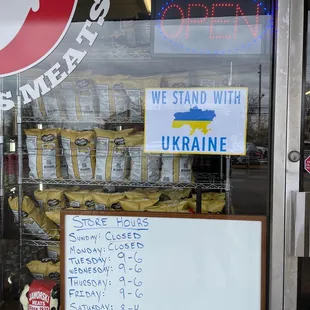 OPEN
& MEATS
WE STAND WITH
UKRAINE
STORE HOURS
SUNDAY: CLOSED
MONDAY: CLOSED
TUESDAY: 9-6
WEDNESDAY: 9-6
THURSDAY: 9-6
FRIDAY: 9-6
SATURDAY: 8-4
MEATS